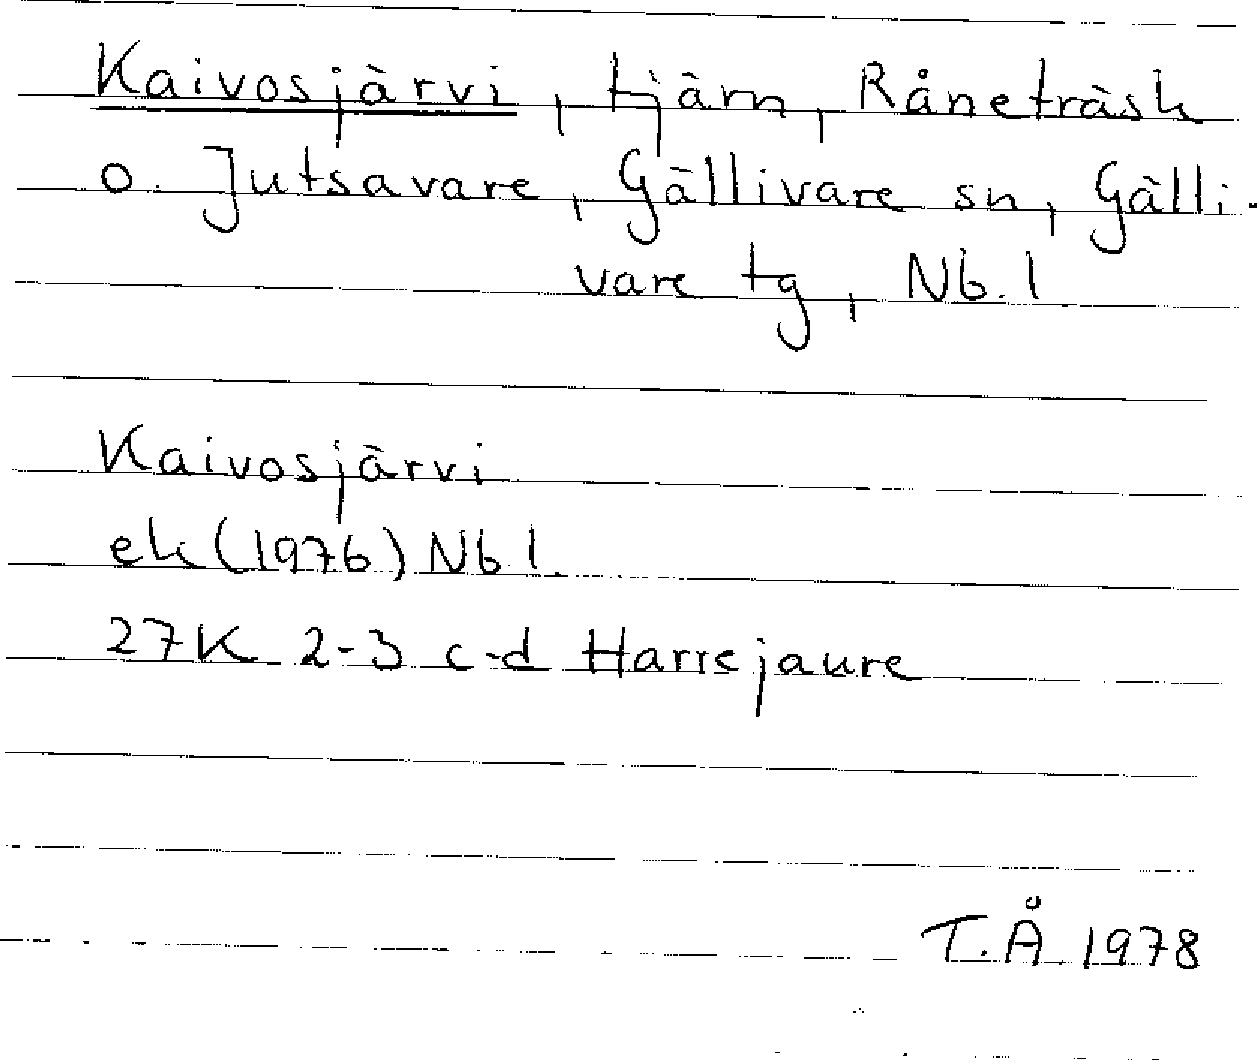 Kaivosjärvi, tjärn, Råneträsk
o. Jutsavare, Gällivare sn, Gälli-
vare tg, Nb. l
Kaivosjärvi
ek (1976) Nb l.
27K 2-3 c-d Harrejaure
T.Å 1978